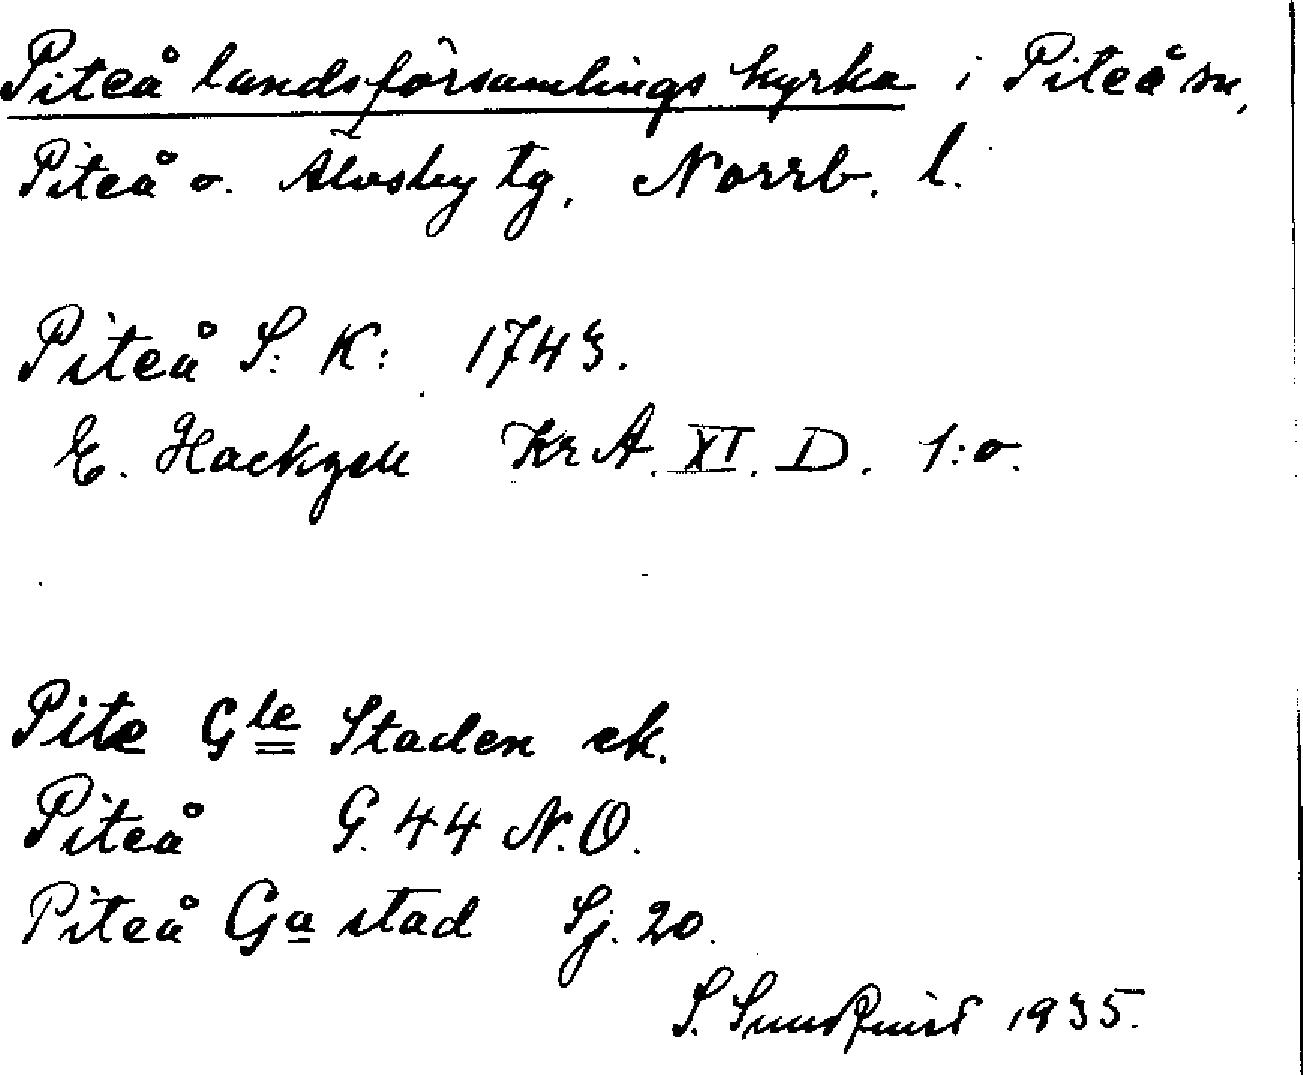 Piteå landsförsamlings kyrka i Piteå sn,
Piteå o. Älvsby tg, Norrb. l.
Piteå S: K: 1743.
E. Hackzell KrA. XI. D. 1:o.
Pite Gle Staden ek.
Piteå G. 44 N.O.
Piteå Ga stad Sj. 20.
S. Sundquist 1935.